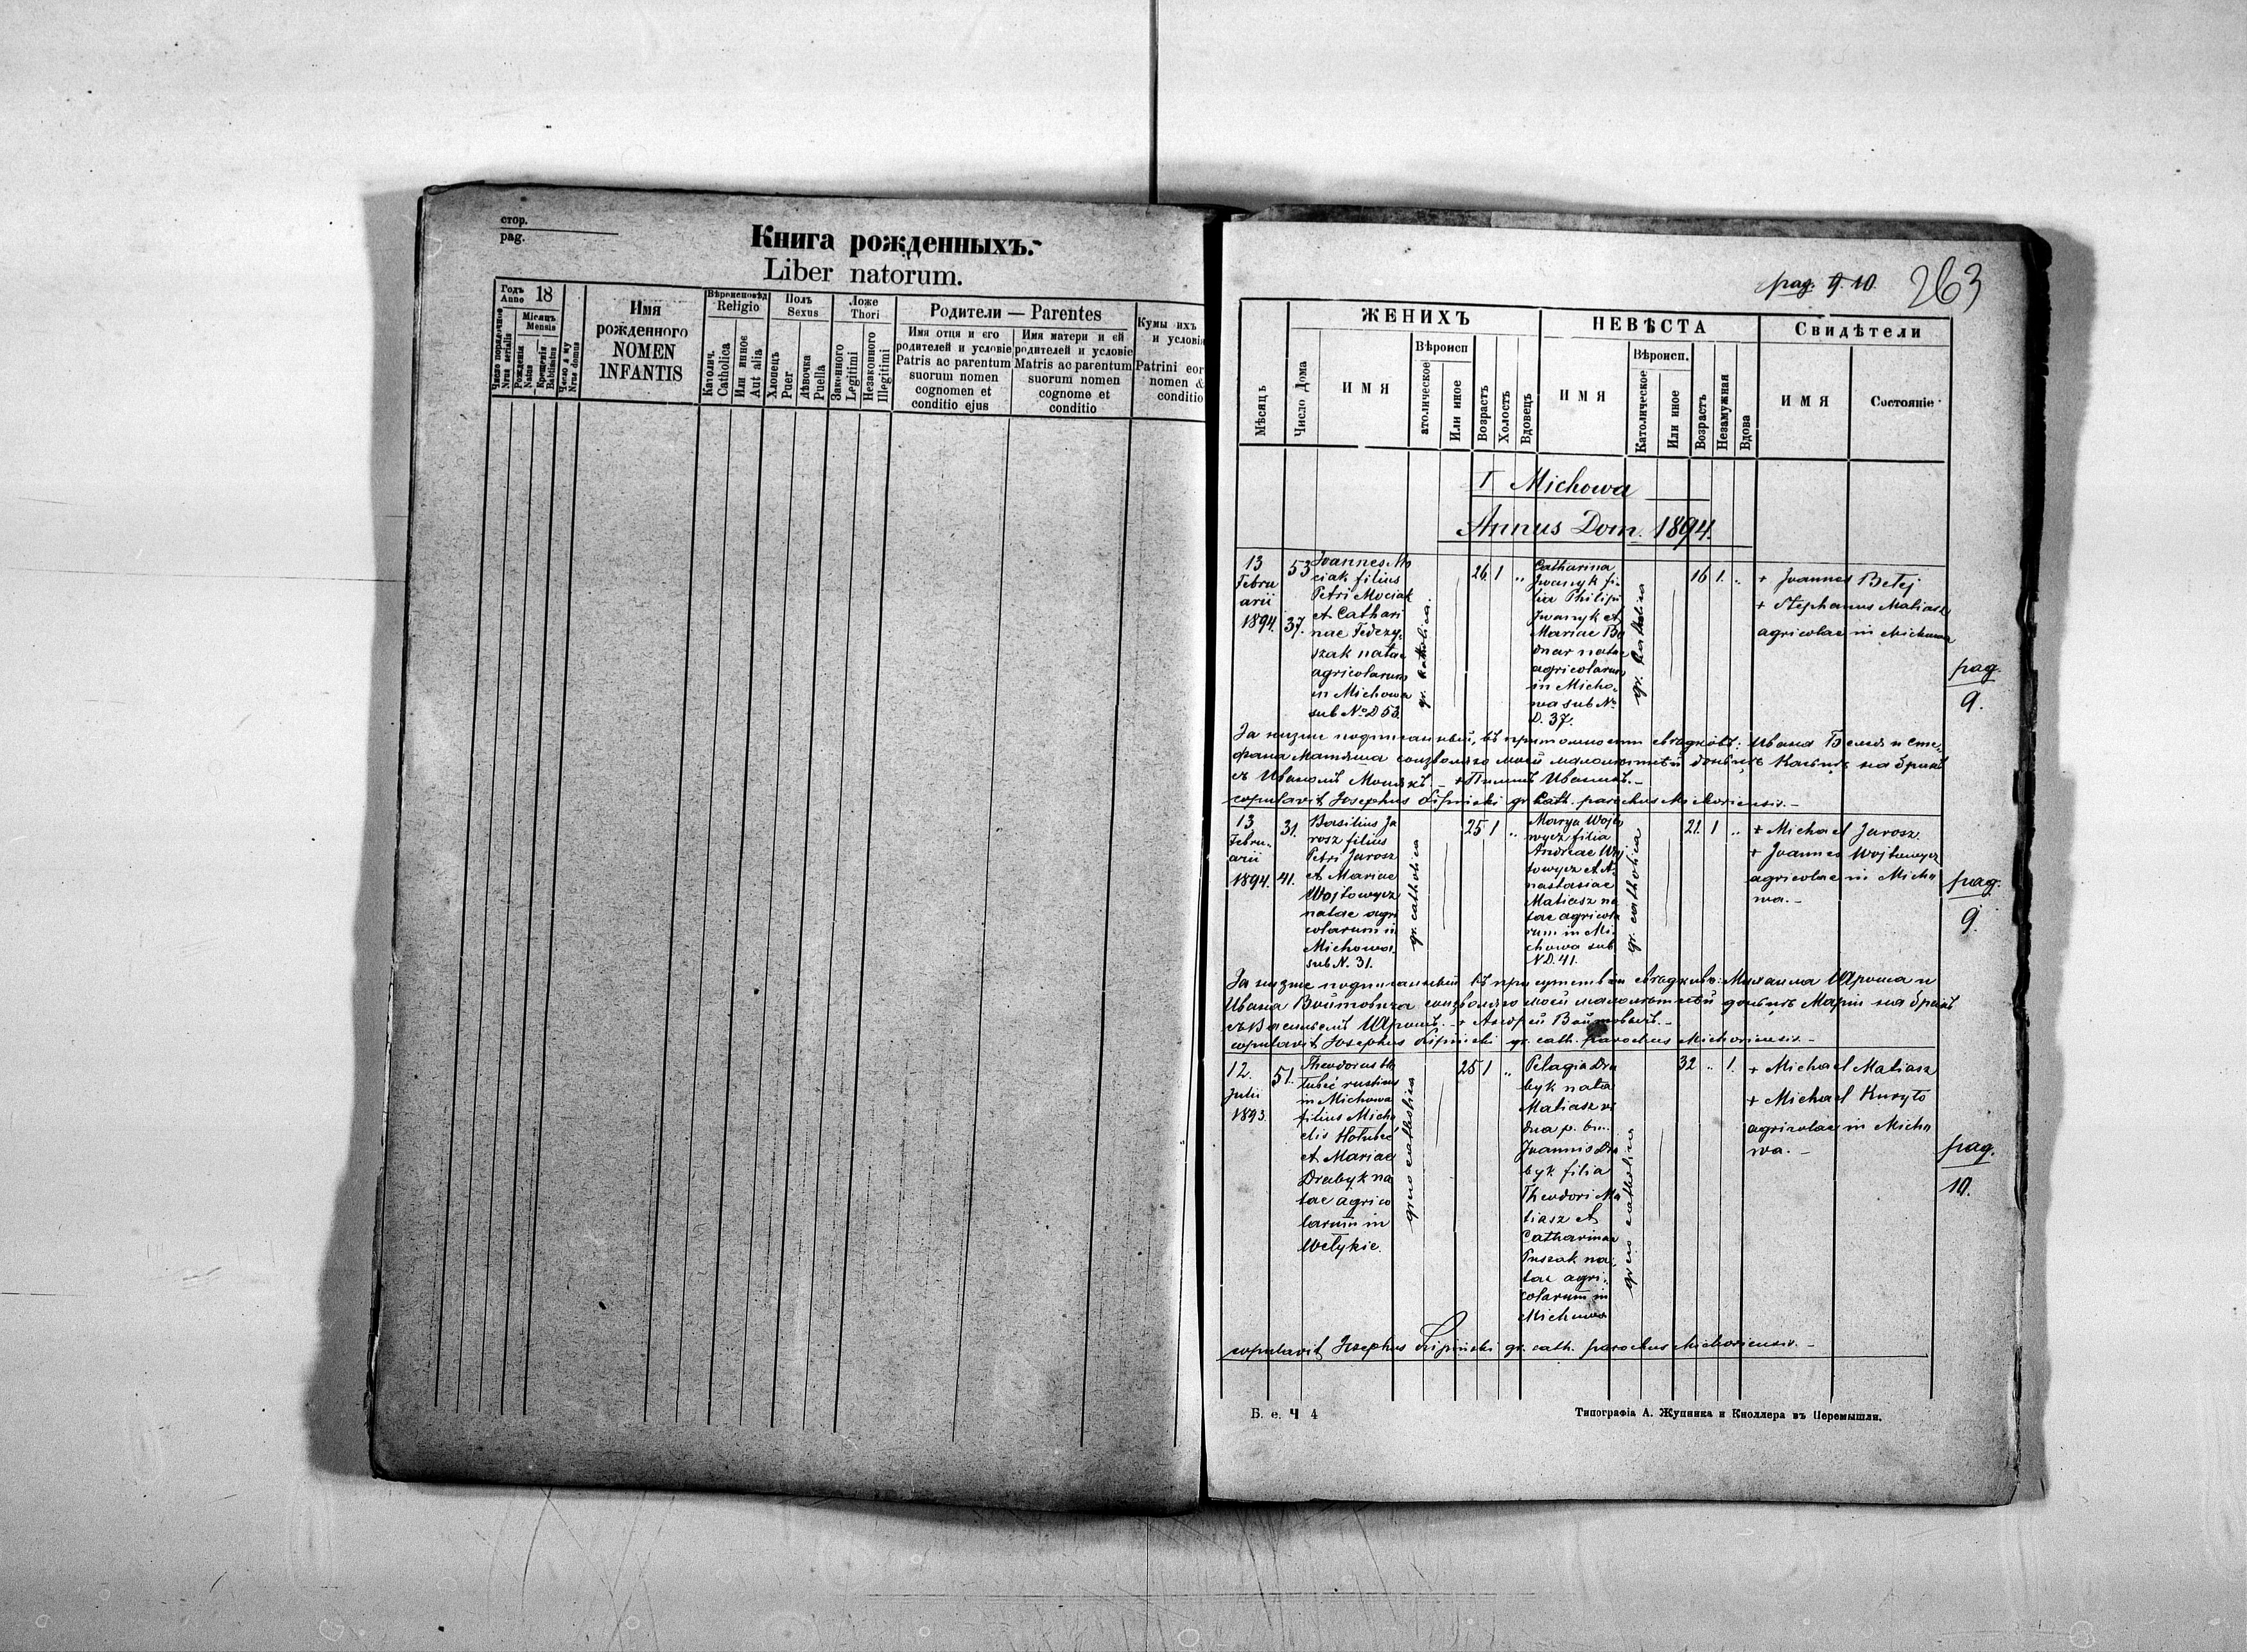 стор.
pag.
Книга рожденныхъ.
Liber natorum.
Годъ
Anno 18
Число порядочное
Nrus serialis
Місяць
Mensis
Рожденія
Natus
Крещенія
Babtisatus
Число дому
Nrus domus
Имя
рожденного
NOMEN
INFANTIS
Вѣроисповѣд
Religio
Католич.
Catholica
Или инное
Aut alia
Полъ
Sexus
Хлопецъ
Puer
Дѣвочка
Puella
Ложе
Thori
Законного
Legitimi
Незаконного
Illegitimi
Родители — Parentes
Имя отця и его
родителей и условіе
Patris ac parentum
suorum nomen
cognomen et
conditio ejus
Имя матери и ей
родителей и условіе
Matris ac parentum
suorum nomen
cognome et
conditio
Кумы ихъ
и условія
Patrini eor
nomen &
conditio
pag. 9. 10.
263
ЖЕНИХЪ
НЕВѢСТА
Свидѣтели
Мѣсяць
Число Дома
ИМЯ
Вѣроисп
атолическое
Или иное
Возрастъ
Холостъ
Вдовець
ИМЯ
Вѣроисп.
Католическое
Или иное
Возрастъ
Незамужная
Вдова
ИМЯ
Состояніе
I Michowa
Annus Dom. 1894.
13
Febru
arii
1894.
53
37.
Joannes Mo
ciak filius
Petri Mociak
et Cathari
nae Fedezy-
szak natae
agricolarum
in Michowa
sub No D 53.
gr. catholica.
26 1 „
Catharina
Iwanyk fi-
lia Philipi
Iwanyk et
Mariae Bo
dnar natae
agricolarum
in Micho-
wa sub No
D. 37.
gr. catholica
16 1. „
+ Joannes Betej
+ Stephanus Matiasz
agricolae in Michowa
pag.
9.
За низше подписанный, въ притомности свѣдковъ: Ивана Белея и Сте-
фана Матяша соизволяю моей малолѣтной доньцѣ Касьцѣ на бракъ
съ Иваномъ Моцякъ. — + Пилипъ Иваникъ. —
copulavit Josephus Lipiński gr. cath. parochus Michoviensis. —
13
Febru-
arii
1894.
31.
41.
Basilius Ja
rosz filius
Petri Jarosz
et Mariae
Wojtowycz
natae agri
colarum in
Michowa
sub N. 31.
gr. catholica
25 1 „
Marya Wojto
wycz filia
Andreae Woj
towycz et A-
nastasiae
Matiasz na
tae agricola
rum in Mi-
chowa sub
N D. 41.
gr. catholica
21. 1 „
+ Michael Jarosz
+ Joannes Wojtowycz
agricolae in Micho
wa. —
pag.
9.
За низше подписанный въ присутствіи свѣдковъ: Михаила Яроша и
Ивана Войтовича соизволяю моей малолѣтной доньцѣ Маріи на бракъ
съ Васильемъ Ярошъ. — + Андрей Войтовичъ. —
copulavit Josephus Lipiński gr. cath. parochus Michoviensis. —
12.
Julii
1893.
51.
Theodorus Ho
łubeć rusticus
in Michowa
filius Micha
elis Hołubeć
et Mariae
Drabyk na
tae agrico
larum in
Wełykie.
graeco catholica
25 1 „
Pelagia Dra
byk nata
Matiasz vi
dua p. b. m.
Joannis Dra
byk filia
Theodori Ma
tiasz et
Catharinae
Puszak na-
tae agri-
colarum in
Michowa
graeco catholica
32 „ 1.
+ Michael Matiasz
+ Michael Kuryło
agricolae in Micho
wa. —
pag.
10.
copulavit Josephus Lipiński gr. cath. parochus Michoviensis. —
Б. е. Ч 4
Типографія А. Жупника и Кноллера въ Перемышли.